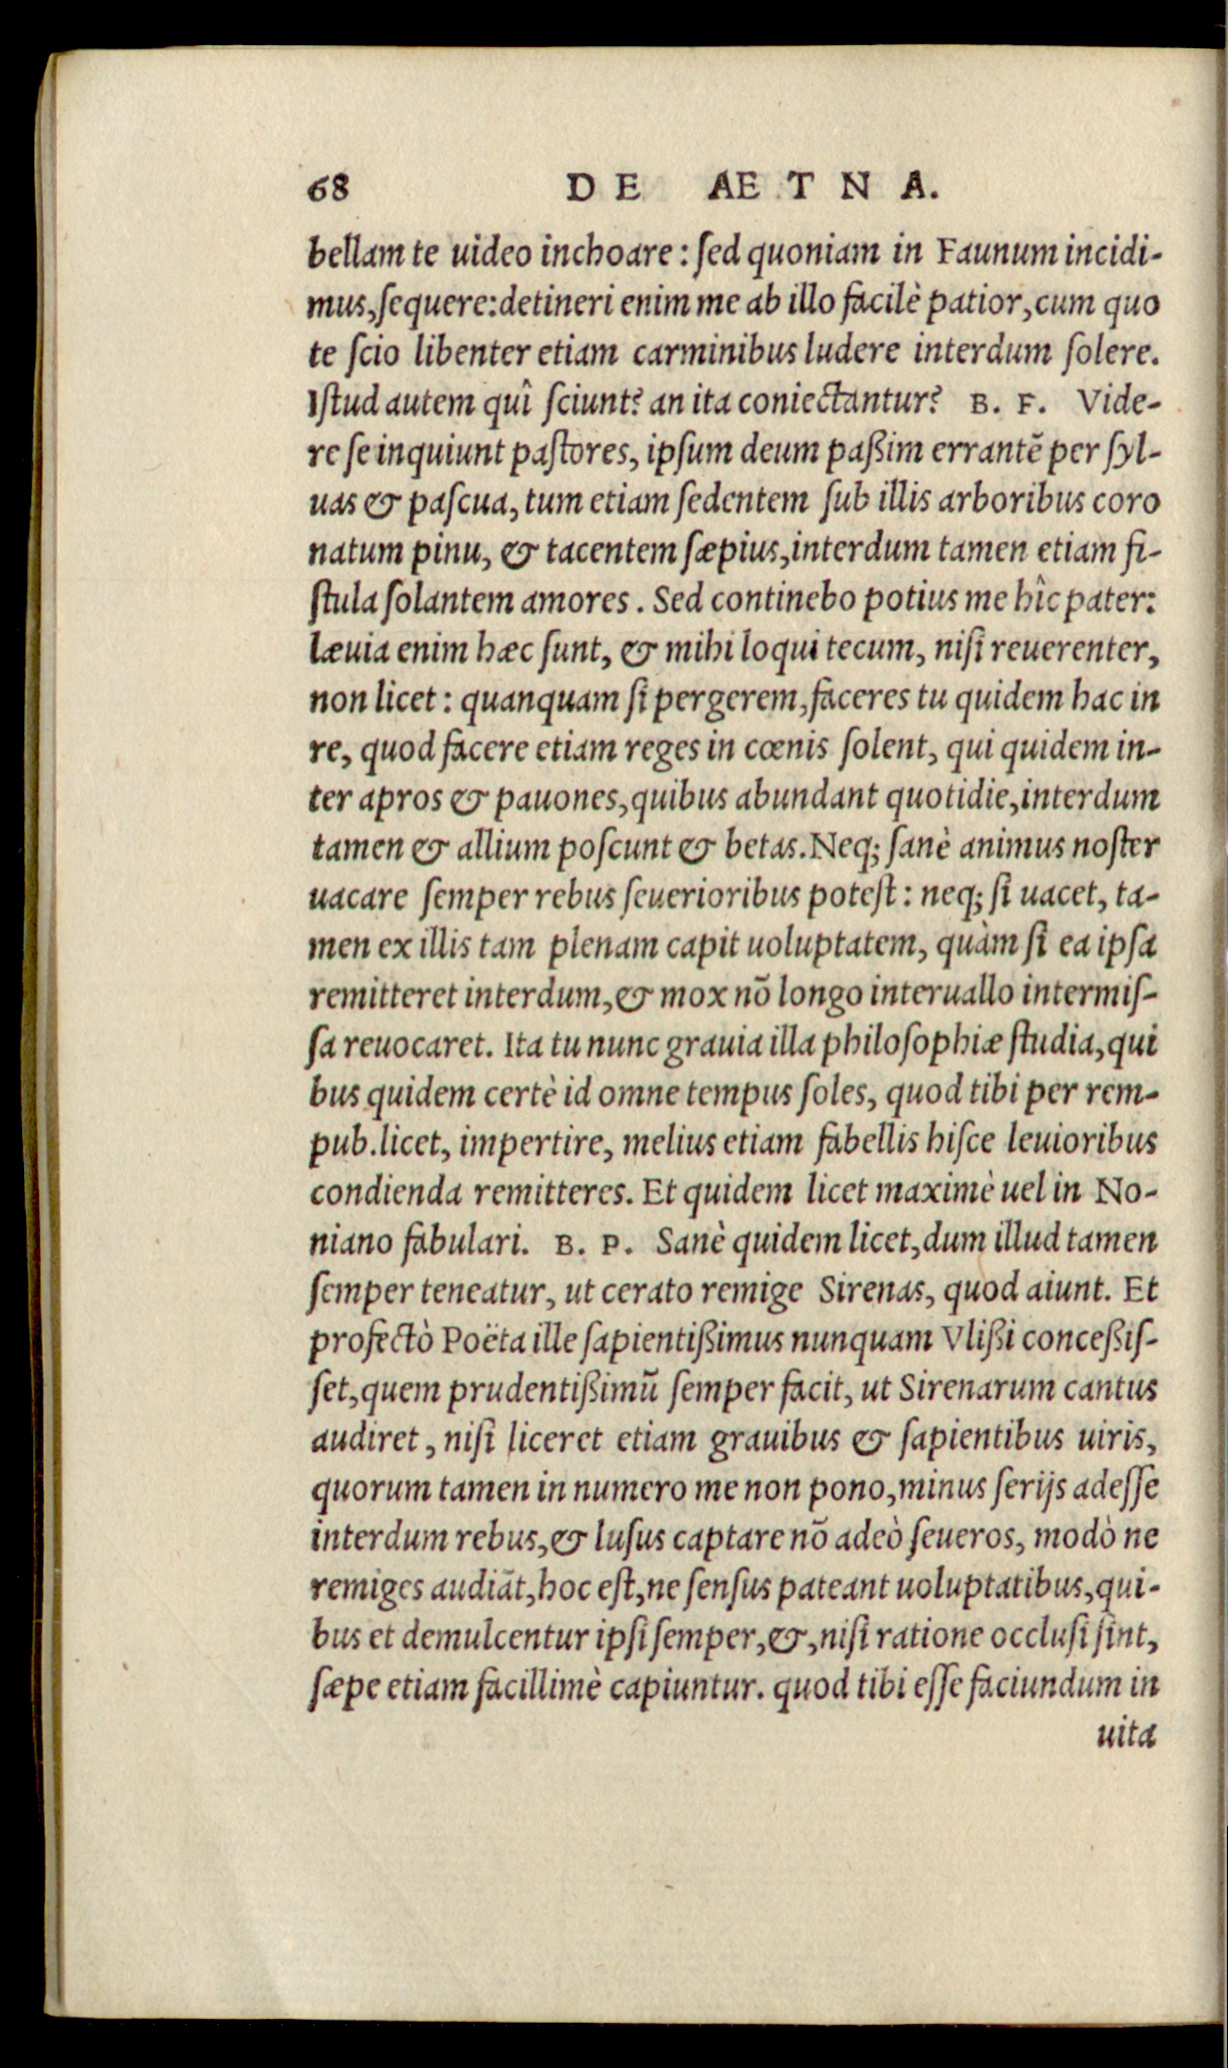 68 DE AETNA.
bellam te uideo inchoare: ſed quoniam in Faunum incidi-
mus, ſequere: detineri enim me ab illo facilè patior, cum quo
te ſcio libenter etiam carminibus ludere interdum ſolere.
Iſtud autem quî ſciunt? an ita coniectantur? B. F. Vide-
re ſe inquiunt paſtores, ipſum deum paßim errantẽ per ſyl-
uas & paſcua, tum etiam ſedentem ſub illis arboribus coro
natum pinu, & tacentem ſæpius, interdum tamen etiam fi-
ſtula ſolantem amores. Sed continebo potius me hîc pater:
læuia enim hæc ſunt, & mihi loqui tecum, niſi reuerenter,
non licet: quanquam ſi pergerem, faceres tu quidem hac in
re, quod facere etiam reges in cœnis ſolent, qui quidem in-
ter apros & pauones, quibus abundant quotidie, interdum
tamen & allium poſcunt & betas. Neq; ſanè animus noſter
uacare ſemper rebus ſeuerioribus poteſt: neq; ſi uacet, ta-
men ex illis tam plenam capit uoluptatem, quàm ſi ea ipſa
remitteret interdum, & mox nõ longo interuallo intermiſ-
ſa reuocaret. Ita tu nunc grauia illa philoſophiæ ſtudia, qui
bus quidem certè id omne tempus ſoles, quod tibi per rem-
pub. licet, impertire, melius etiam fabellis hiſce leuioribus
condienda remitteres. Et quidem licet maximè uel in No-
niano fabulari. B. P. Sanè quidem licet, dum illud tamen
ſemper teneatur, ut cerato remige Sirenas, quod aiunt. Et
profectò Poëta ille ſapientißimus nunquam Vlißi conceßiſ-
ſet, quem prudentißimũ ſemper facit, ut Sirenarum cantus
audiret, niſi liceret etiam grauibus & ſapientibus uiris,
quorum tamen in numero me non pono, minus ſerijs adeſſe
interdum rebus, & luſus captare nõ adeò ſeueros, modò ne
remiges audiãt, hoc eſt, ne ſenſus pateant uoluptatibus, qui-
bus et demulcentur ipſi ſemper, &, niſi ratione occluſi ſint,
ſæpe etiam facillimè capiuntur. quod tibi eſſe faciundum in
uita